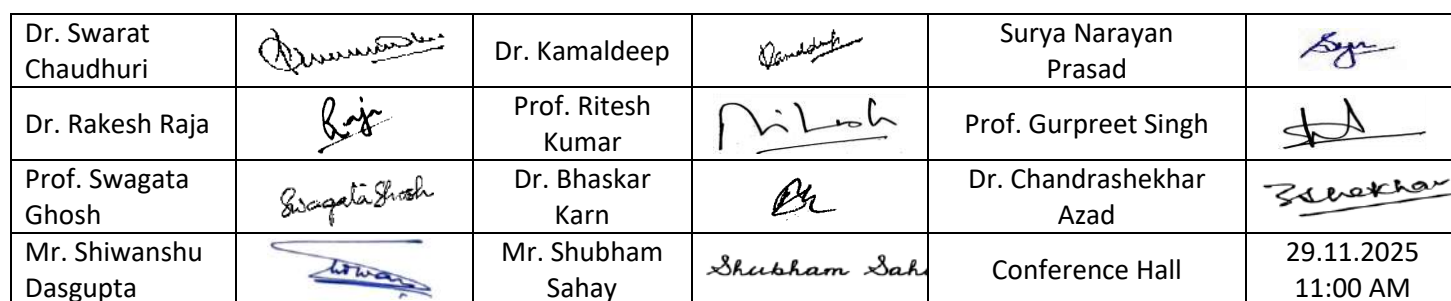 Dr. Swarat
Chaudhuri
Dr. Kamaldeep
Kamaldeep
Surya Narayan
Prasad
Dr. Rakesh Raja
Raja
Prof. Ritesh
Kumar
Ritesh
Prof. Gurpreet Singh
Prof. Swagata
Ghosh
Swagata Ghosh
Dr. Bhaskar
Karn
Dr. Chandrashekhar
Azad
Mr. Shiwanshu
Dasgupta
Mr. Shubham
Sahay
Shubham Saha
Conference Hall
29.11.2025
11:00 AM